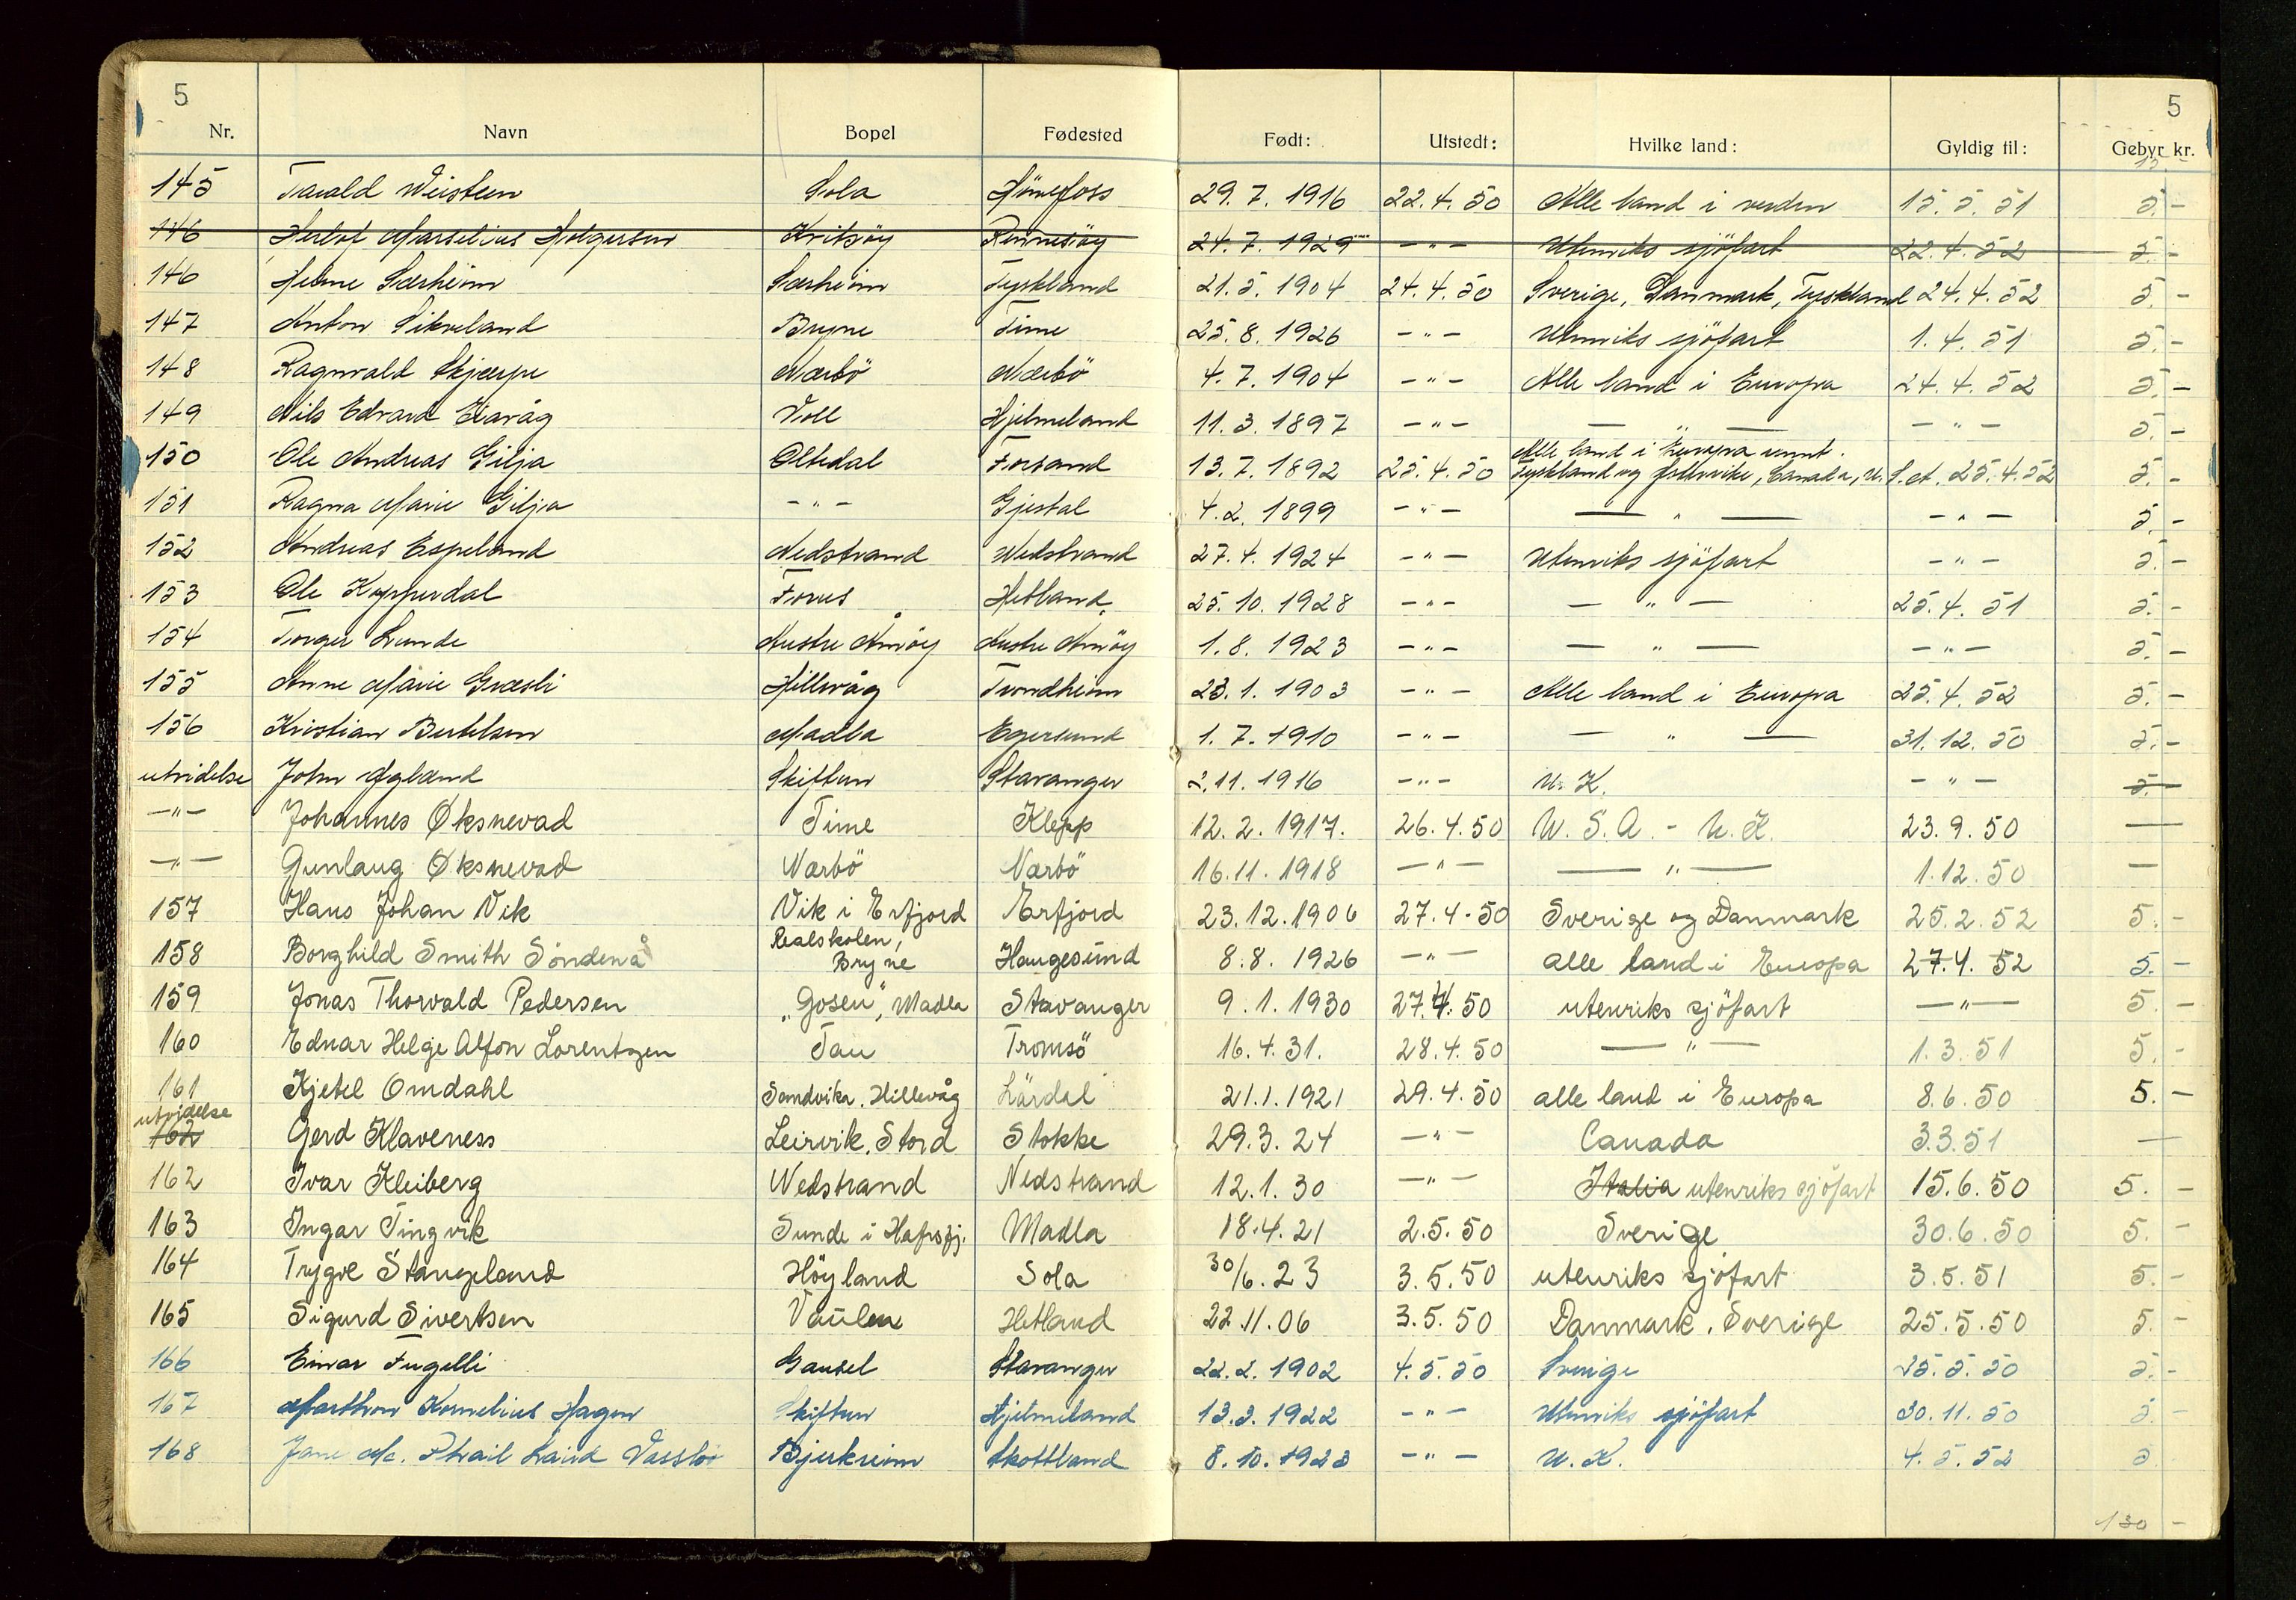 5 5
Nr. Navn Bopel Fødested Født: Utstedt: Hvilke land: Gyldig til: Gebyr kr.
145 Tarald Weisteen Sola Hönefoss 29.7.1916 22.4.50 Alle land i verden 15.5.51 5.-
146 Herlof Marselius Holgersen Kvitsöy Rennesöy 24.7.1929 -"- Utenriks sjöfart 22.4.52 5.-
146 Helene Særheim Særheim Tyskland 21.5.1904 24.4.50 Sverige, Danmark, Tyskland 24.4.52 5.-
147 Anton Sikveland Bryne Time 25.8.1926 -"- Utenriks sjöfart 1.4.51 5.-
148 Ragnvald Skjærpe Nærbö Nærbö 4.7.1904 -"- Alle land i Europa 24.4.52 5.-
149 Nils Edvard Eiavåg Voll Hjelmeland 11.3.1897 -"- -"- -"- 5.-
Alle land i Europa unnt.
150 Ole Andreas Gilja Oltedal Forsand 13.7.1892 25.4.50 Tyskland og Østerrike, Canada, U.S.A. 25.4.52 5.-
151 Ragna Marie Gilja -"- Gjestal 4.2.1899 -"- -"- -"- 5.-
152 Andreas Espeland Nedstrand Nedstrand 27.4.1924 -"- Utenriks sjöfart -"- 5.-
153 Ole Kopperdal Forus Hetland 25.10.1928 -"- -"- 25.4.51 5.-
154 Torger Lunde Austre Åmöy Austre Amöy 1.8.1923 -"- -"- -"- 5.-
155 Anne Marie Græsli Hillevåg Trondheim 23.1.1903 -"- Alle land i Europa 25.4.52 5.-
156 Kristian Bertelsen Madla Egersund 1.7.1910 -"- -"- 31.12.50 5.-
utvidelse John Øgland Skiftun Stavanger 2.11.1916 -"- U.K. -"- 5.-
-"- Johannes Øksnevad Time Klepp 12.2.1917. 26.4.50 U.S.A. - U.K. 23.9.50 -
-"- Gunlaug Øksnevad Nærbö Nærbö 16.11.1918 -"- -"- 1.12.50 -
157 Hans Johan Vik Vik i Erfjord Erfjord 23.12.1906 27.4-50 Sverige og Danmark 25.2.52 5.-
158 Borghild Smith Söndenå Realskolen, Bryne Haugesund 8.8.1926 -"- alle land i Europa 27.4.52 5.-
159 Jonas Thorvald Pedersen "Gosen", Madla Stavanger 9.1.1930 27.4.50 utenriks sjöfart -"- 5.-
160 Ednar Helge Alfon Lorentzen Tau Tromsö 16.4.31. 28.4.50 -"- 1.3.51 5.-
161 Kjetel Omdahl Sandvikv. Hillevåg Lärdal 21.1.1921 29.4.50 alle land i Europa 8.6.50 5.-
utvidelse
162 Gerd Klaveness Leirvik, Stord Stokke 29.3.24 -"- Canada 3.3.51 -
162 Ivar Kleiberg Nedstrand Nedstrand 12.1.30 -"- Italia utenriks sjöfart 15.6.50 5.-
163 Ingar Tingvik Sunde i Hafrsfj. Madla 18.4.21 2.5.50 Sverige 30.6.50 5.-
164 Trygve Stangeland Höyland Sola 30/6.23 3.5.50 utenriks sjöfart 3.5.51 5.-
165 Sigurd Sivertsen Vaulen Hetland 22.11.06 3.5.50 Danmark, Sverige 25.5.50 5.-
166 Einar Fugelli Gausel Stavanger 22.2.1902 4.5.50 Sverige 25.5.50 5.-
167 Marthon Kornelius Hagen Skiftun Hjelmeland 13.3.1922 -"- Utenriks sjöfart 30.11.50 5.-
168 Jane Mc. Phail Laird Vassbö Bjerkreim Skottland 8.10.1923 -"- U.K. 4.5.52 5
130 -